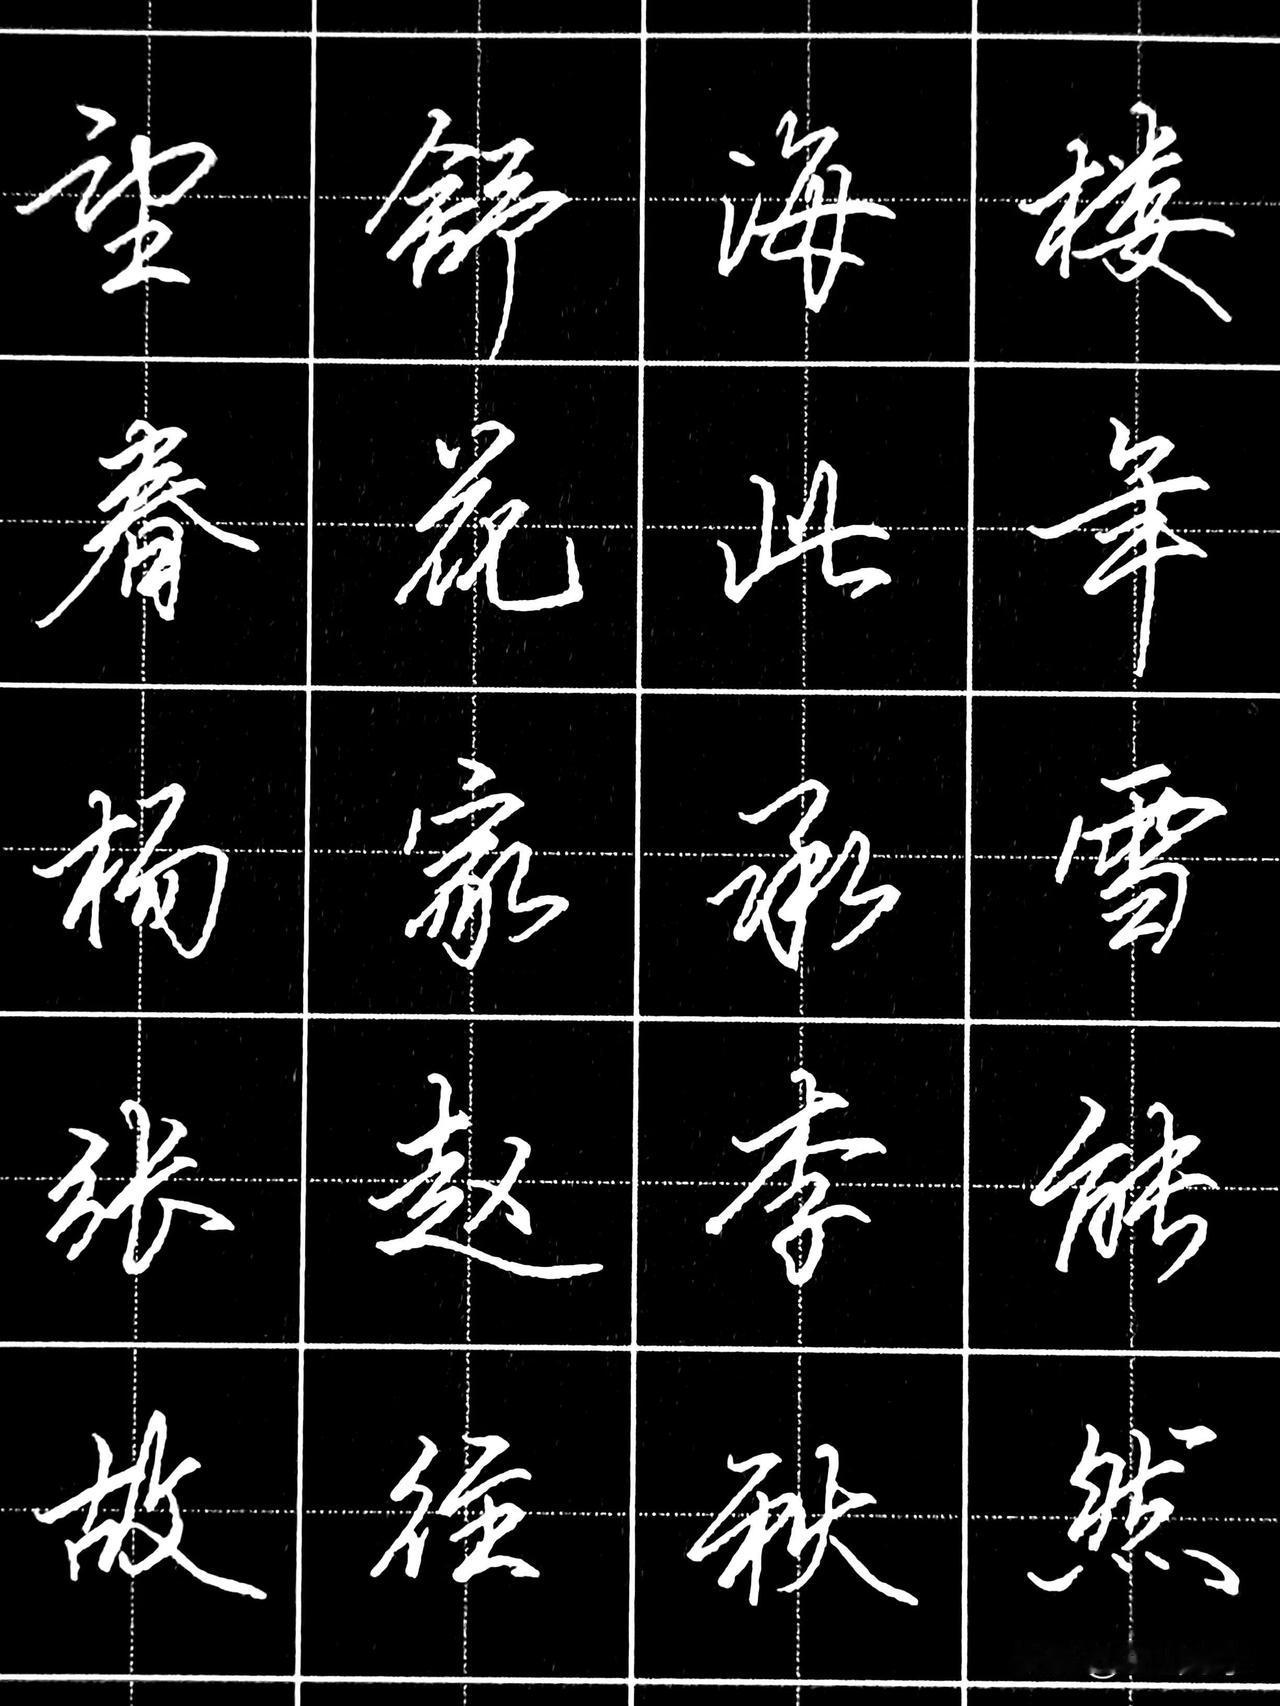 望舒海楼
春花此年
杨家承雪
张赵李能
故径秋然